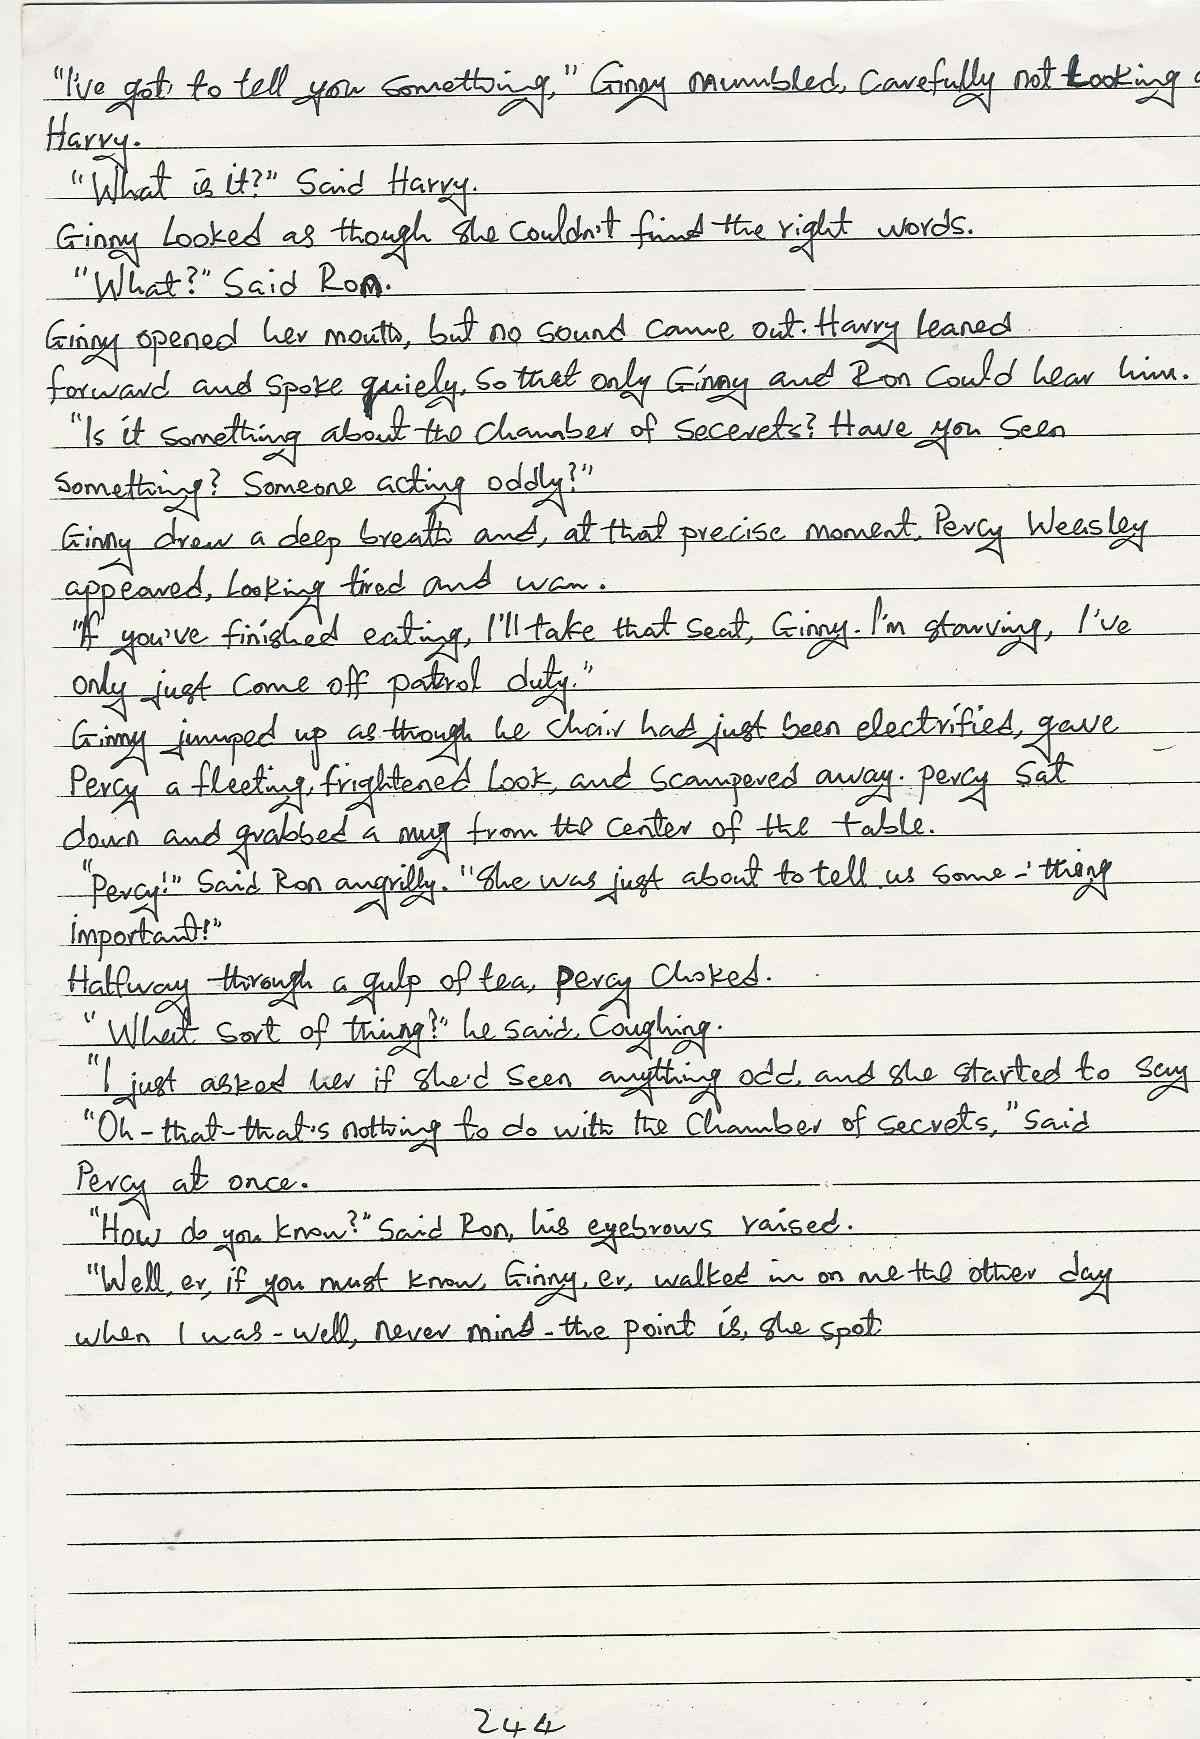 "I've got to tell you something," Ginny mumbled, carefully not Looking
Harry.
"What is it?" Said Harry.
Ginny Looked as though she couldn't find the right words.
"What?" Said Ron.
Ginny opened her mouth, but no sound came out. Harry leaned
forward and spoke quiely, so that only Ginny and Ron could hear him.
"Is it something about the chamber of secerets? Have you seen
something? Someone acting oddly?"
Ginny drew a deep breath and, at that precise moment, Percy Weasley
appeared, Looking tired and wan.
"If you've finished eating, I'll take that seat, Ginny. I'm starving, I've
only just come off patrol duty."
Ginny jumped up as though he chair had just been electrified, gave
Percy a fleeting, frightened Look, and scampered away. percy sat
down and grabbed a mug from the center of the table.
"Percy!" Said Ron angrilly. "She was just about to tell us some-thing
important!"
Halfway through a gulp of tea, percy choked.
"What sort of thing?" he said, coughing.
"I just asked her if she'd seen anything odd, and she started to say
"Oh-that-that's nothing to do with the Chamber of secrets," said
Percy at once.
"How do you know?" Said Ron, his eyebrows raised.
"Well, er, if you must know, Ginny, er, walked in on me the other day
when I was-well, never mind-the point is, she spot
244